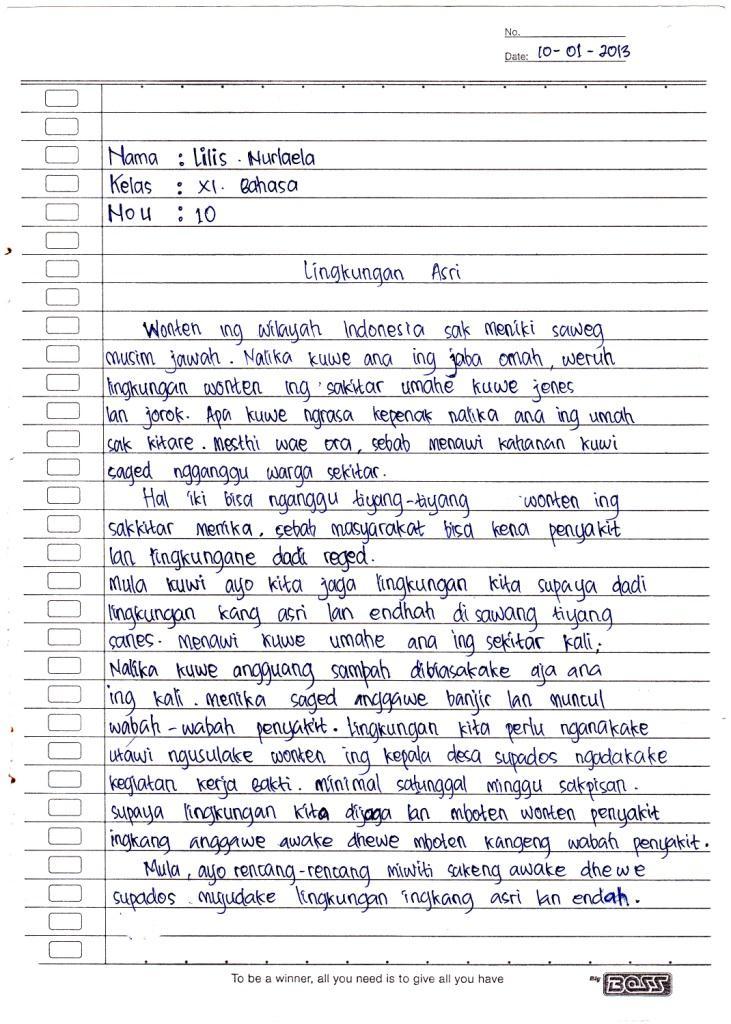 No.
Date: 10-01-2013
Nama : Lilis . Nurlaela
Kelas : XI. Bahasa
No u : 10
Lingkungan Asri
Wonten ing wilayah Indonesia sak meniki saweg
musim jawah. Nalika kuwe ana ing jaba omah, weruh
lingkungan wonten ing sakitar umahe kuwe jenes
lan jorok. Apa kuwe ngrasa kepenak nalika ana ing umah
sak kitare. Mesthi wae ora, sebab menawi kahanan kuwi
saged ngganggu warga sekitar.
Hal iki bisa nganggu tiyang-tiyang wonten ing
sakkitar menika, sebab masyarakat bisa kena penyakit
lan lingkungane dadi reged.
Mula kuwi ayo kita jaga lingkungan kita supaya dadi
lingkungan kang asri lan endhah di sawang tiyang
sanes. Menawi kuwe umahe ana ing sekitar kali,
Nalika kuwe angguang sampah dibiasakake aja ana
ing kali. menika saged anggawe banjir lan muncul
wabah-wabah penyakit. lingkungan kita perlu nganakake
utawi ngusulake wonten ing kepala desa supados ngadakake
kegiatan kerja bakti. minimal satunggal minggu sakpisan.
supaya lingkungan kita dijaga lan mboten wonten penyakit
ingkang anggawe awake dhewe mboten kangeng wabah penyakit.
Mula, ayo rencang-rencang miwiti sakeng awake dhewe
supados mujudake lingkungan ingkang asri lan endah.
To be a winner, all you need is to give all you have
Big BOSS